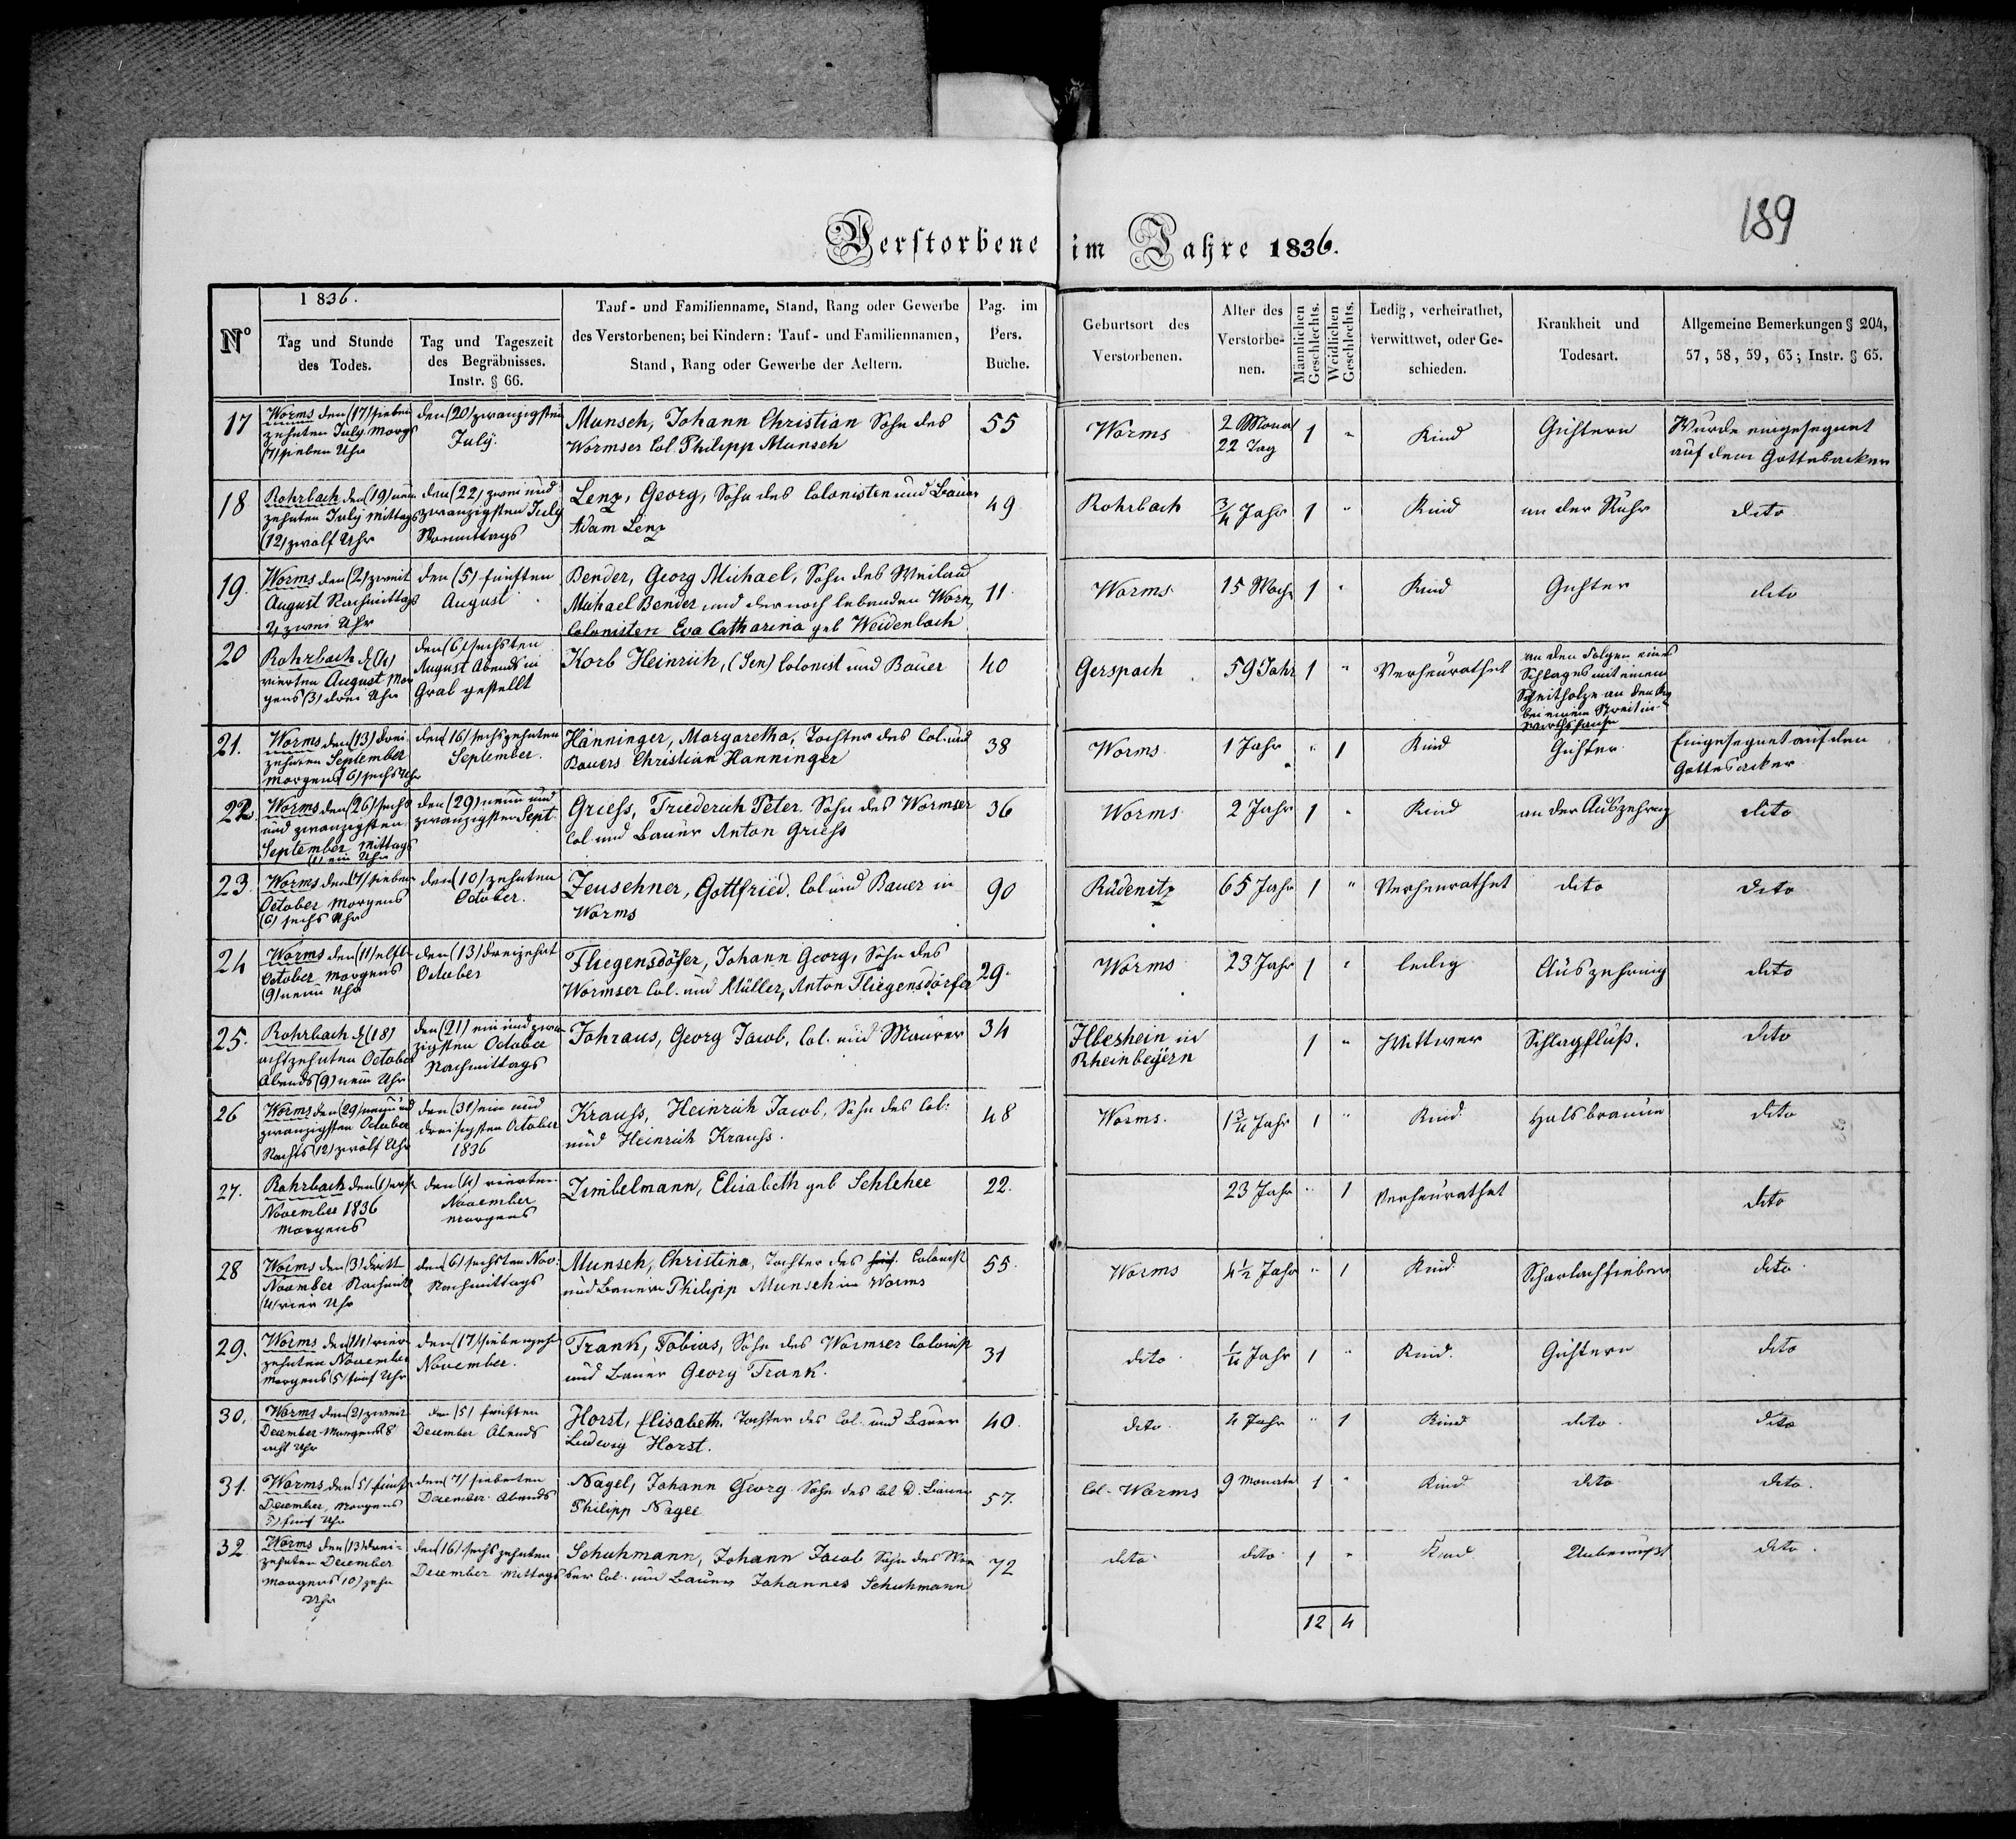 189
Verstorbene im Jahre 1836.
N°
1836.
Tag und Stunde
des Todes.
Tag und Tageszeit
des Begräbnisses.
Instr. § 66.
Tauf- und Familienname, Stand, Rang oder Gewerbe
des Verstorbenen; bei Kindern: Tauf- und Familiennamen,
Stand, Rang oder Gewerbe der Aeltern.
Pag. im
Pers.
Buche.
Geburtsort des
Verstorbenen.
Alter des
Verstorbe-
nen.
Männlichen
Geschlechts.
Weidlichen
Geschlechts.
Ledig, verheirathet,
verwittwet, oder Ge-
schieden.
Krankheit und
Todesart.
Allgemeine Bemerkungen § 204,
57, 58, 59, 63; Instr. § 65.
17
Worms den (17) sieben
zehnten July Morgs
(7) sieben Uhr
den (20) zwanzigsten
July.
Munsch, Johann Christian Sohn des
Wormser Col. Philipp Munsch
55
Worms
2 Monat
22 Tag
1 "
Kind
Gichtern
Wurde eingesegnet
auf dem Gottesacker
18
Rohrbach den (19) neun
zehnten July Mittags
(12) zwölf Uhr
den (22) zwei und
zwanzigsten July
Vormittags
Lenz, Georg, Sohn des Colonisten und Bauer
Adam Lenz
49
Rohrbach
3/4 Jahr
1 "
Kind
an der Ruhr
dito
19.
Worms den (2) zweit
August Nachmittags
2) zwei Uhr
den (5) fünften
August
Bender, Georg Michael, Sohn des Weiland
Michael Bender und der noch lebenden Worm
Colonisten Eva Catharina geb Weidenbach
11.
Worms
15 Woch
1 "
Kind
Gichter
dito
20
Rohrbach d (4)
vierten August Mor
gens (3) drei Uhr
den (6) sechsten
August Abends in
Grab gestellt
Korb Heinrich, (Sen) Colonist und Bauer
40
Gerspach
59 Jahr
1 "
Verheurathet
an den Folgen eines
Schlages mit einem
Scheitholze an den
bei einem Streit in
Wirthshause
21.
Worms den (13) drei
zehnten September
Morgens (6) sechs Uhr
den (16) sechszehnten
September.
Hänninger, Margaretha, Tochter des Col. und
Bauers Christian Hänninger
38
Worms
1 Jahr
" 1
Kind
Gichter
Eingesegnet auf den
Gottesacker
22.
Worms den (26) sechs
und zwanzigsten
September Mittags
(1) ein Uhr
den (29) neun und
zwanzigsten Sept.
Griess, Friederich Peter Sohn des Wormser
Col. und Bauer Anton Griess
36
Worms
2 Jahr
1 "
Kind
an der Auszehrung
dito
23.
Worms den (7) sieben
October Morgens
(6) sechs Uhr
den (10) zehnten
October.
Zeuschner, Gottfried, Col und Bauer in
Worms
90
Rüdenitz
65 Jahr
1 "
Verheurathet
dito
dito
24
Worms den (11) elft
October Morgens
(9) neun Uhr
den (13) dreizehnt
October
Fliegensdöfer, Johann Georg, Sohn des
Wormser Col. und Müller, Anton Fliegensdörfer
29.
Worms
23 Jahr
1 "
ledig
Auszehrung
dito
25.
Rohrbach d (18)
achtzehnten October
Abends (9) neun Uhr
den (21) ein und zwan
zigsten October
Nachmittags
Fahraus, Georg Jacob, Col. und Maurer
34
Ilbeshein in
Rheinbeÿern
1 "
Wittwer
Schlagfluß.
dito
26
Worms den (29) neun und
zwanzigsten October
Nachts (12) zwölf Uhr
den (31) ein und
dreisigsten October
1836
Krauss, Heinrich Jacob, Sohn des Col.
und Heinrich Krauss.
48
Worms.
1 3/4 Jahr
1 "
Kind
Halsbraune
dito
27.
Rohrbach den (1) erst
November 1836
Morgens
den (4) vierten
November
Morgens
Zimbelmann, Elisabeth geb Schlehee
22.
23 Jahr
" 1
Verheurathet
dito
28
Worms den (3) dritt
November Nachmitt
(4) vier Uhr
den (6) sechsten Nov:
Nachmittags
Munsch, Christina, Tochter des Colonist
und Bauern Philipp Munsch in Worms
55.
Worms
4 1/2 Jahr
" 1
Kind
Scharlachfieber
dito
29.
Worms den (14) vier
zehnten November
Morgens (5) fünf Uhr
den (17) siebenzehn
November.
Frank, Tobias, Sohn des Wormser Colonist
und Bauer Georg Frank.
31
dito
1/4 Jahr
1 "
Kind.
Gichtern
dito
30.
Worms den (2) zweit
December Morgens 8
acht Uhr
den (5) fünften
December Abends
Horst, Elisabeth, Tochter des Col. und Bauer
Ludewig Horst.
40.
dito
4 Jahr
" 1
Kind
dito
dito
31.
Worms den (5) fünft
December, Morgens
5) fünf Uhr
den (7) siebenten
December Abends
Nagel, Johann Georg Sohn des Col D. Bauer
Philipp Nagel
57.
Col. Worms
9 Monate
1 "
Kind
dito
dito.
32
Worms den (13) drei-
zehnten December
Morgens 10) zehn
Uhr
den (16) sechszehnten
December Mittags
Schuhmann, Johann Jacob Sohn des Wor
ser Col. und Bauers Johannes Schuhmann
72
dito
dito
1 "
Kind
Unbewußt
dito.
12 4